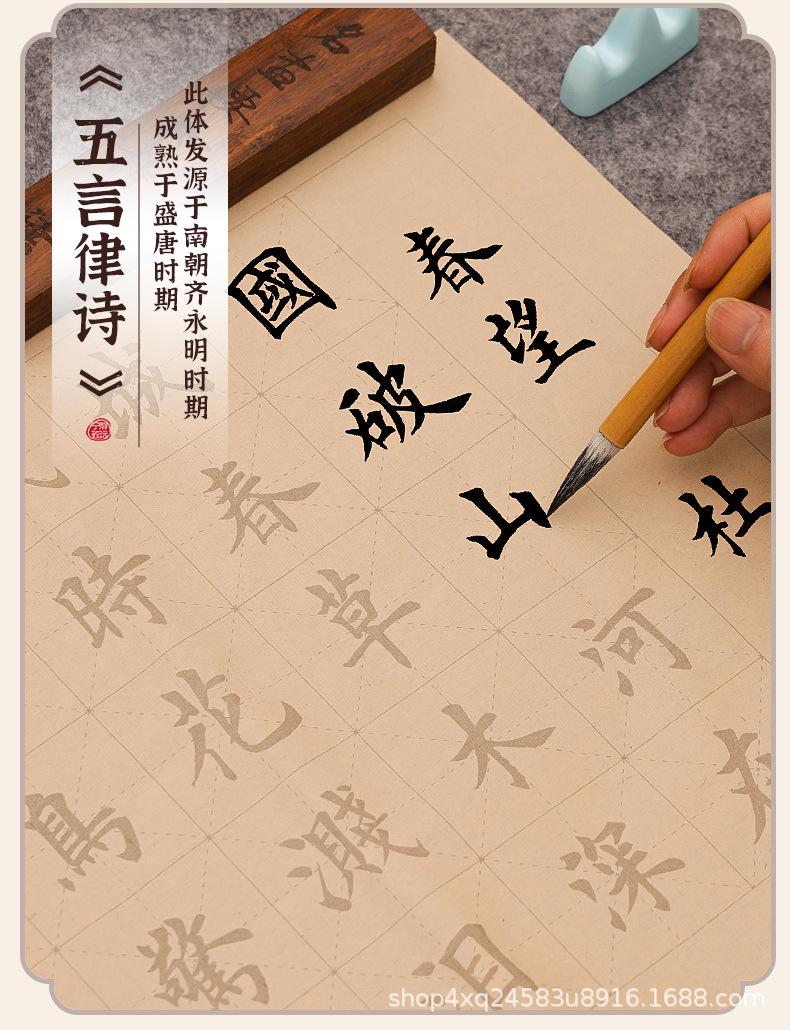 《五言律诗》
此体发源于南朝齐永明时期
成熟于盛唐时期
春望
杜
國破山河在
城春草木深
時花濺泪
鳥驚
shop4xq24583u8916.1688.com